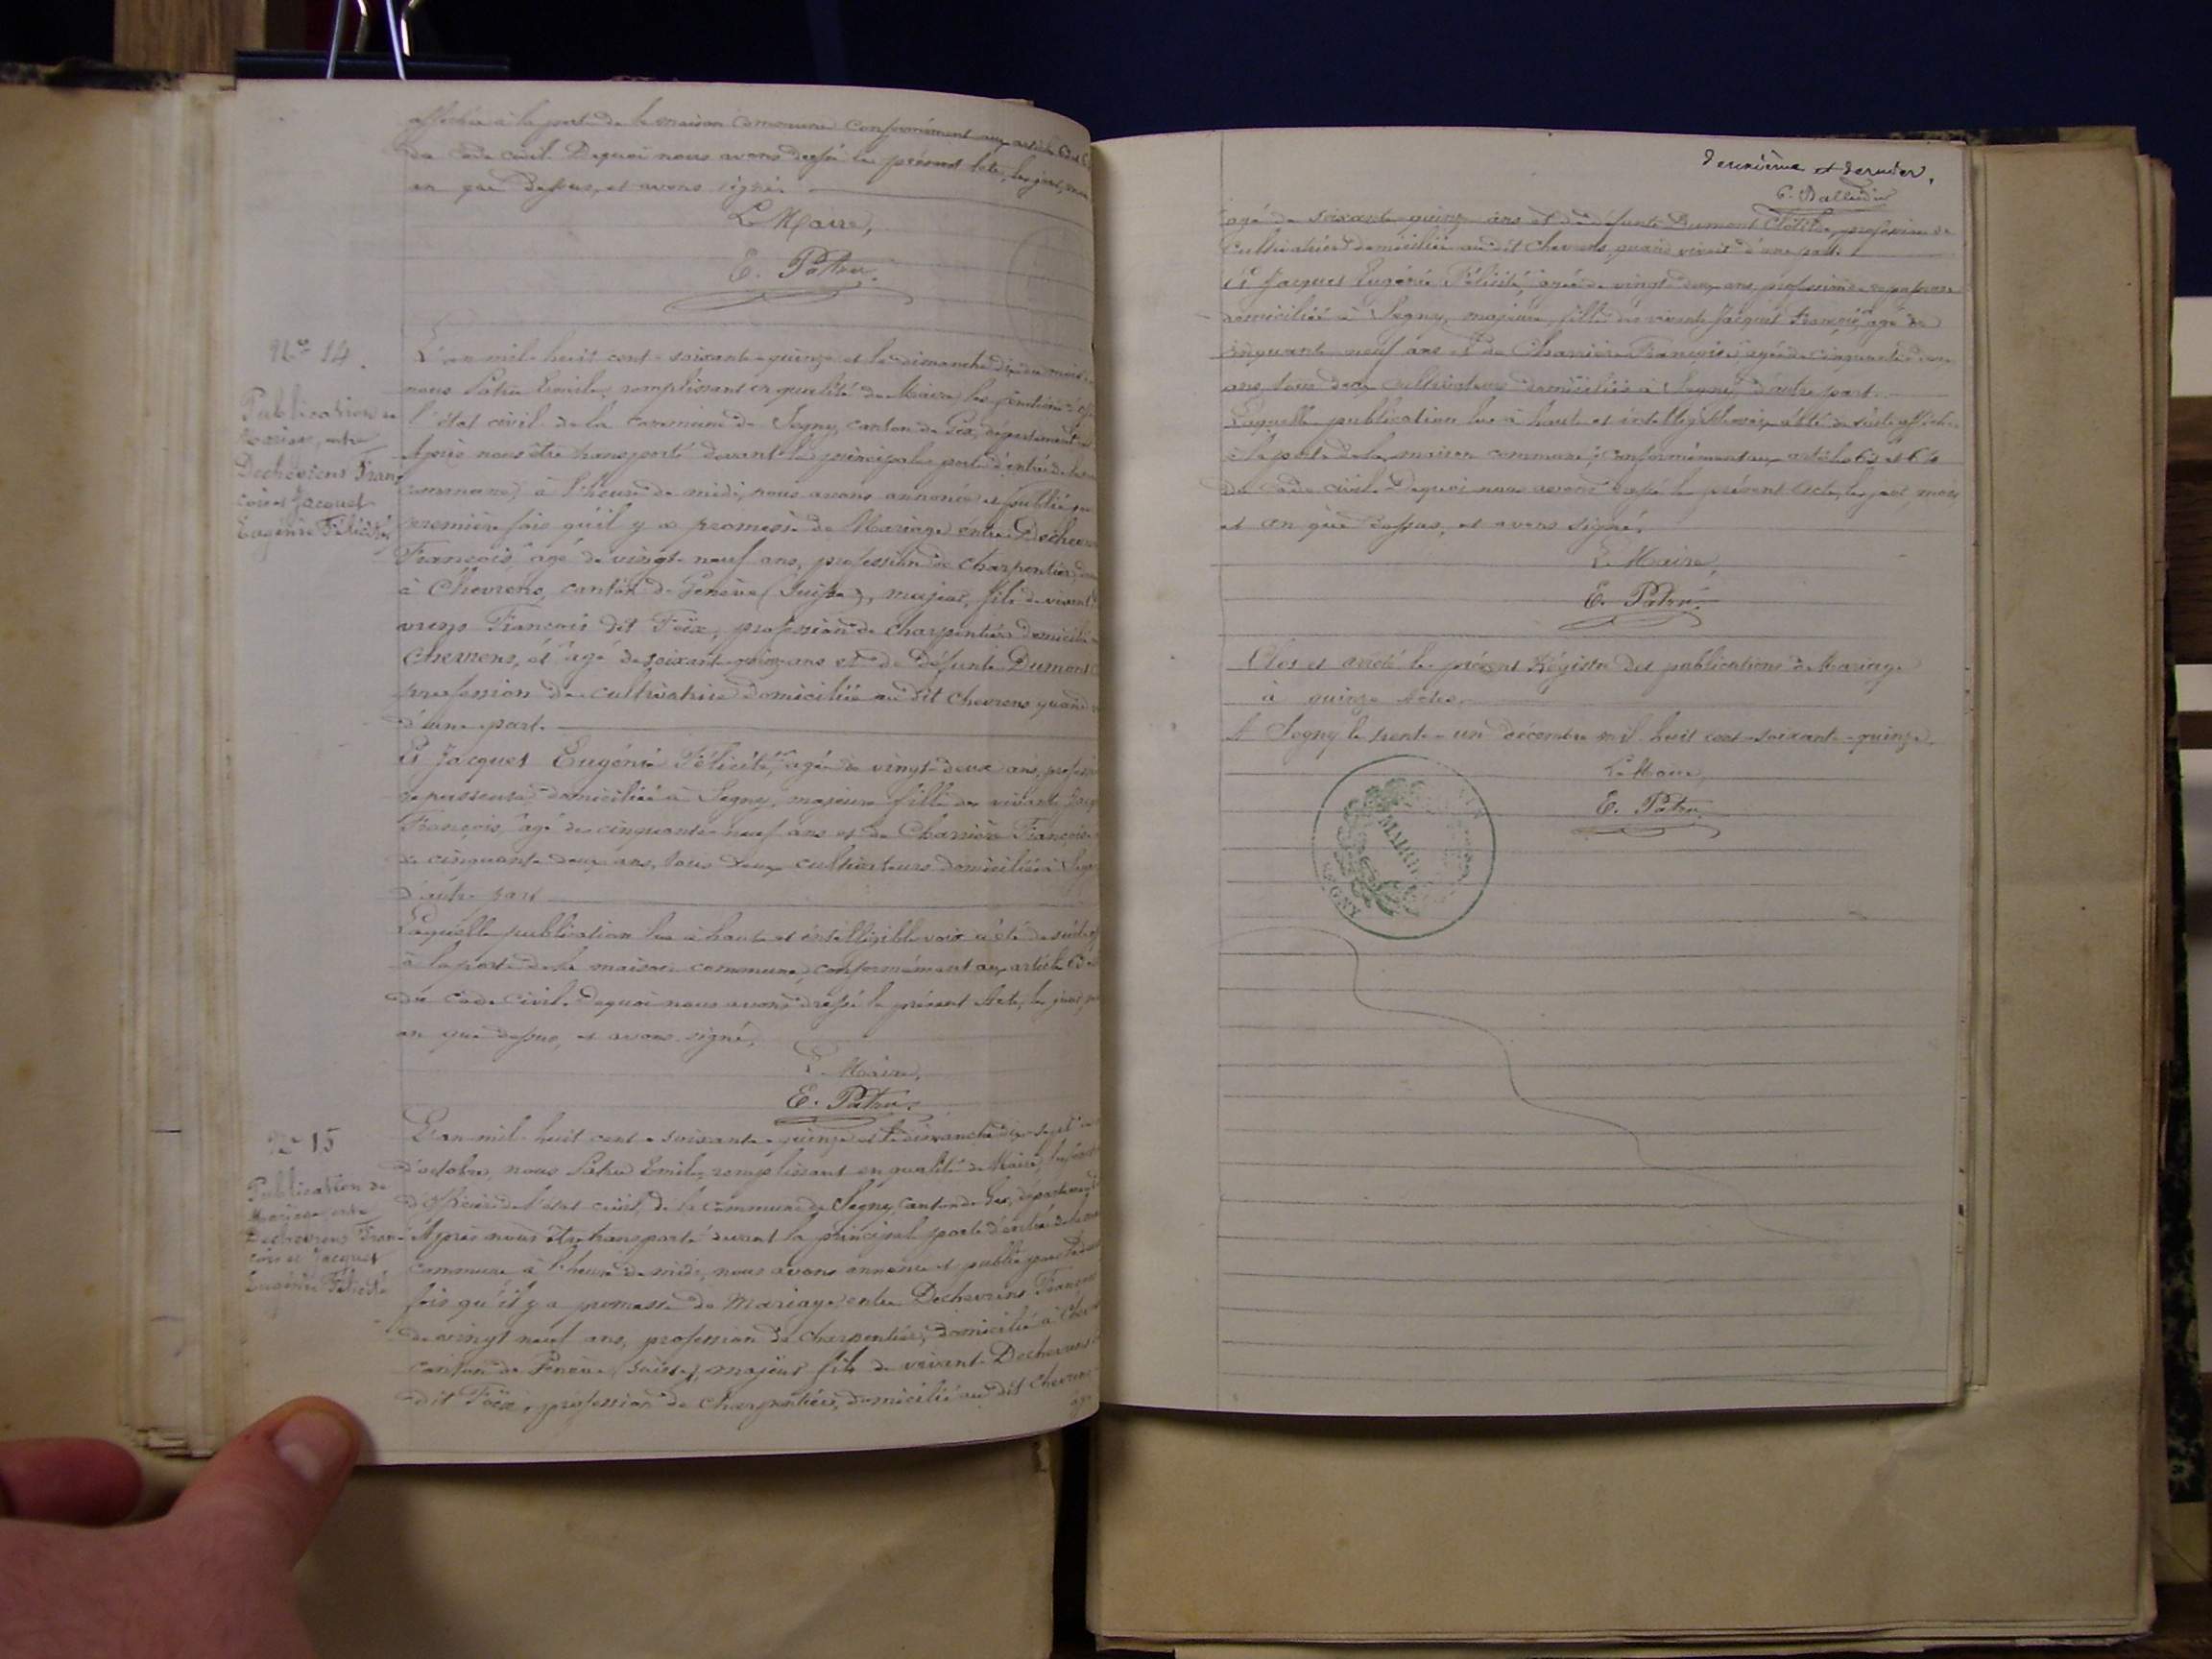 affichée à la porte de la maison commune conformément aux articles 63 et
du code civil. Dequoi nous avons dressé le présent acte, les jour, mois
an que dessus, et avons signé.
Le Maire,
E. Patru.
No 14.
Publication de
Mariage, entre
Dechevrens Fran-
çois et Jacquet
Eugénie Félicité
L'an mil huit cent soixante-quinze et le dimanche dix du mois
nous Patru Emile, remplissant en qualité de Maire les fonctions
l'état civil de la commune de Segny, canton de Gex, département
Après nous être transporté devant la principale porte d'entrée de la
commune, à l'heure de midi, nous avons annoncé et publié
première fois qu'il y a promesse de Mariage entre Dechev
François, âgé de vingt-neuf ans, profession de charpentier,
à Chevrens, canton de Genève (Suisse), majeur, fils de vivant
vrens François dit Foëx, profession de charpentier domicilié
Chevrens, et âgé de soixante-quinze ans et de défunte Dumont
profession de cultivatrice domiciliée au dit Chevrens quand
d'une part.
Et Jacquet Eugénie Félicité, âgée de vingt-deux ans, profession
repasseuse domiciliée à Segny, majeure fille de vivants Jacq
François, âgé de cinquante-neuf ans et de Charrière Françoise
de cinquante deux ans, tous deux cultivateurs domiciliés à Segn
d'autre part
Laquelle publication lue à haute et intelligible voix a été de suite
à la porte de la maison commune, conformément aux articles 63
du code civil. Dequoi nous avons dressé le présent Acte, les jour,
an que dessus, et avons signé.
Le Maire,
E. Patru.
No 15
Publication de
Mariage entre
Dechevrens Fran-
çois et Jacquet
Eugénie Félicité
L'an mil huit cent soixante-quinze et le dimanche dix-sept
d'octobre, nous Patru Emile, remplissant en qualité de Maire, les fonct
d'officier de l'état civil, de la commune de Segny, canton de Gex, département
Après nous être transporté devant la principale porte d'entrée de la
commune à l'heure de midi, nous avons annoncé et publié pour la
fois qu'il y a promesse de Mariage entre Dechevrens François
de vingt neuf ans, profession de charpentier, domicilié à Chev
canton de Genève (Suisse), majeur fils de vivant Dechevrens
dit Foëx, profession de charpentier, domicilié au dit Chevrens
deuxième et dernier.
âgé de soixante-quinze ans et de défunte Dumont Clotilde, profession de
cultivatrice domiciliée au dit Chevrens, quand vivait d'une part.
Et Jacquet Eugénie Félicité, âgée de vingt-deux ans, profession de repasseuse
domiciliée à Segny, majeure, fille de vivants Jacquet François, âgé de
cinquante neuf ans et de Charrière Françoise, âgée de cinquante deux
ans, tous deux cultivateurs domiciliés à Segny, d'autre part.
Laquelle publication lue à haute et intelligible voix a été de suite affichée
à la porte de la maison commune, conformément aux articles 63 et 64
du code civil. Dequoi nous avons dressé le présent Acte, les jour, mois
et an que dessus, et avons signé.
Le Maire,
E. Patru.
Clos et arrêté le présent Régistre des publications de Mariage
à quinze Actes.
A Segny le trente-un décembre mil huit cent-soixante-quinze.
Le Maire,
E. Patru.
MAIRIE
SEGNY